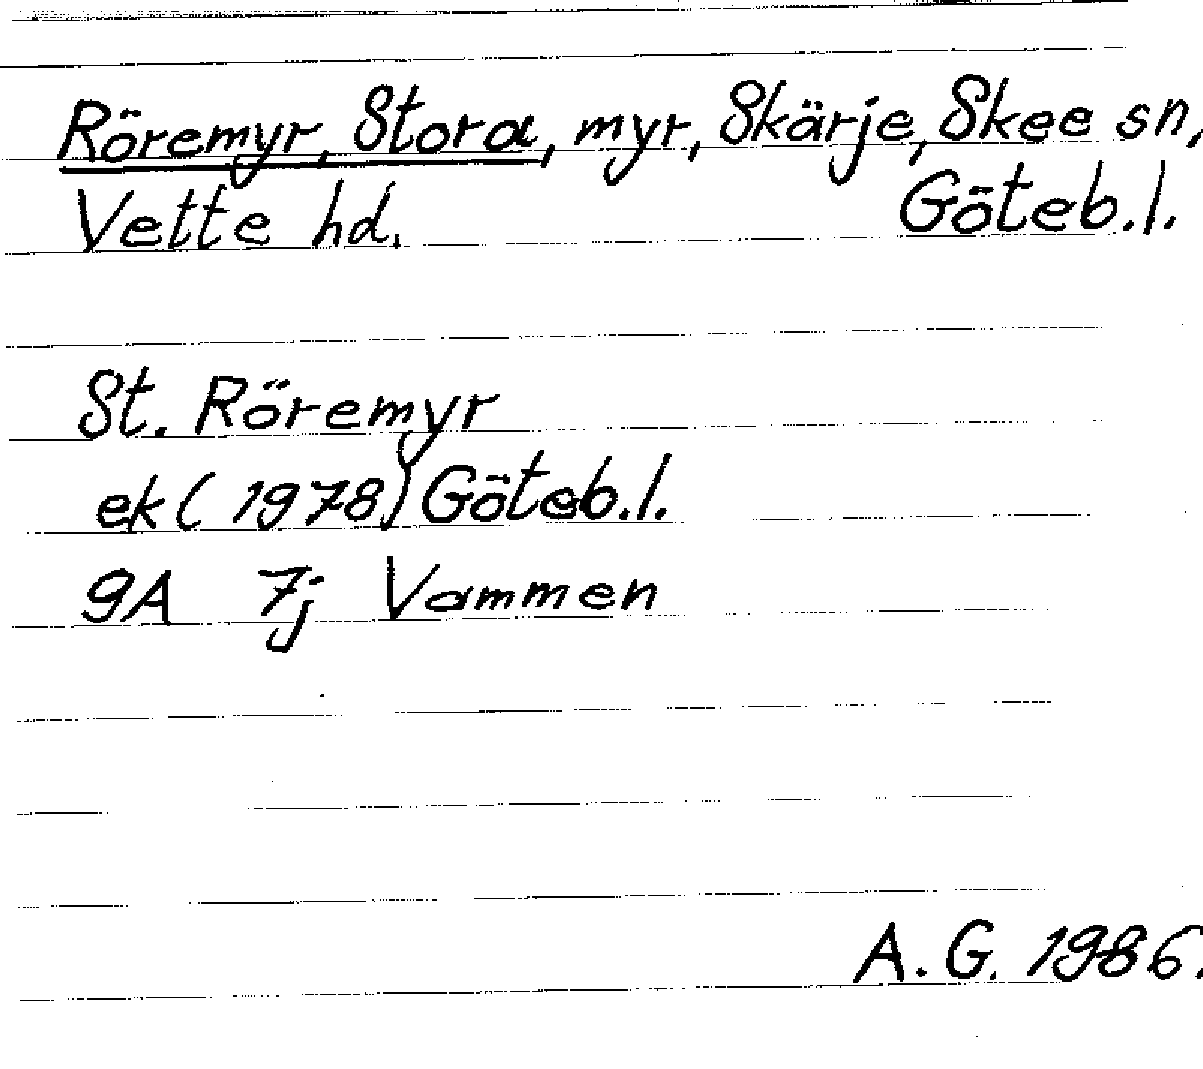 Röremyr, Stora, myr, Skärje, Skee sn,
Vette hd. Göteb.l.
St. Röremyr
ek (1978) Göteb.l.
9A 7j Vammen
A.G. 1986.